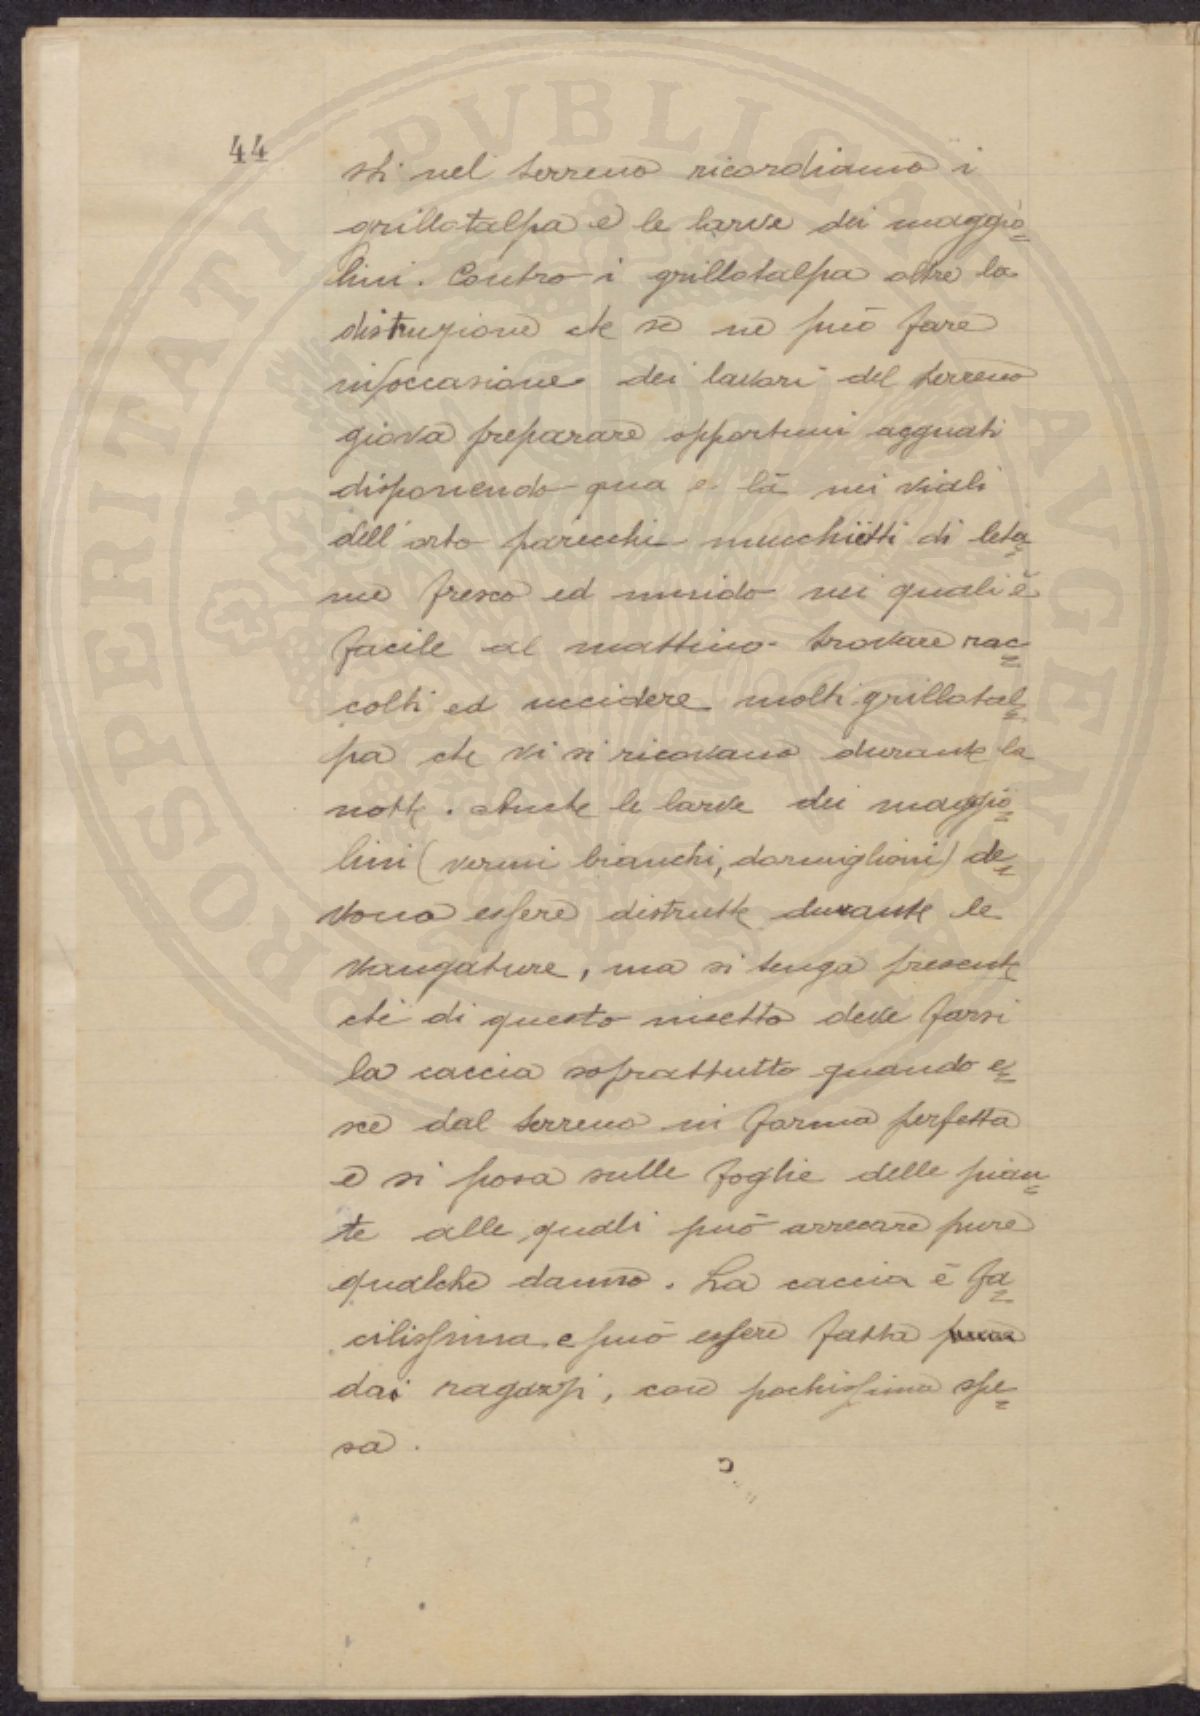 PROSPERITATI PVBLICAE AVGENDAE
44
sti nel terreno ricordiamo i
grillotalpa e le larve dei maggio=
lini. Contro i grillotalpa oltre la
distruzione che se ne può fare
in occasione dei lavori del terreno
giova preparare opportuni agguati
disponendo qua e là nei viali
dell'orto parecchi mucchietti di leta=
me fresco ed umido nei quali è
facile al mattino trovare rac=
colti ed uccidere molti grillotal=
pa che vi si ricovano durante la
notte. Anche le larve dei maggio=
lini (vermi bianchi, dormiglioni) de=
vono essere distrutte durante le
vangature, ma si tenga presente
che di questo insetto deve farsi
la caccia soprattutto quando e=
sce dal terreno in forma perfetta
e si posa sulle foglie delle pian=
te alle quali può arrecare pure
qualche danno. La caccia è fa=
cilissima e può essere fatta
dai ragazzi, con pochissima spe=
sa.